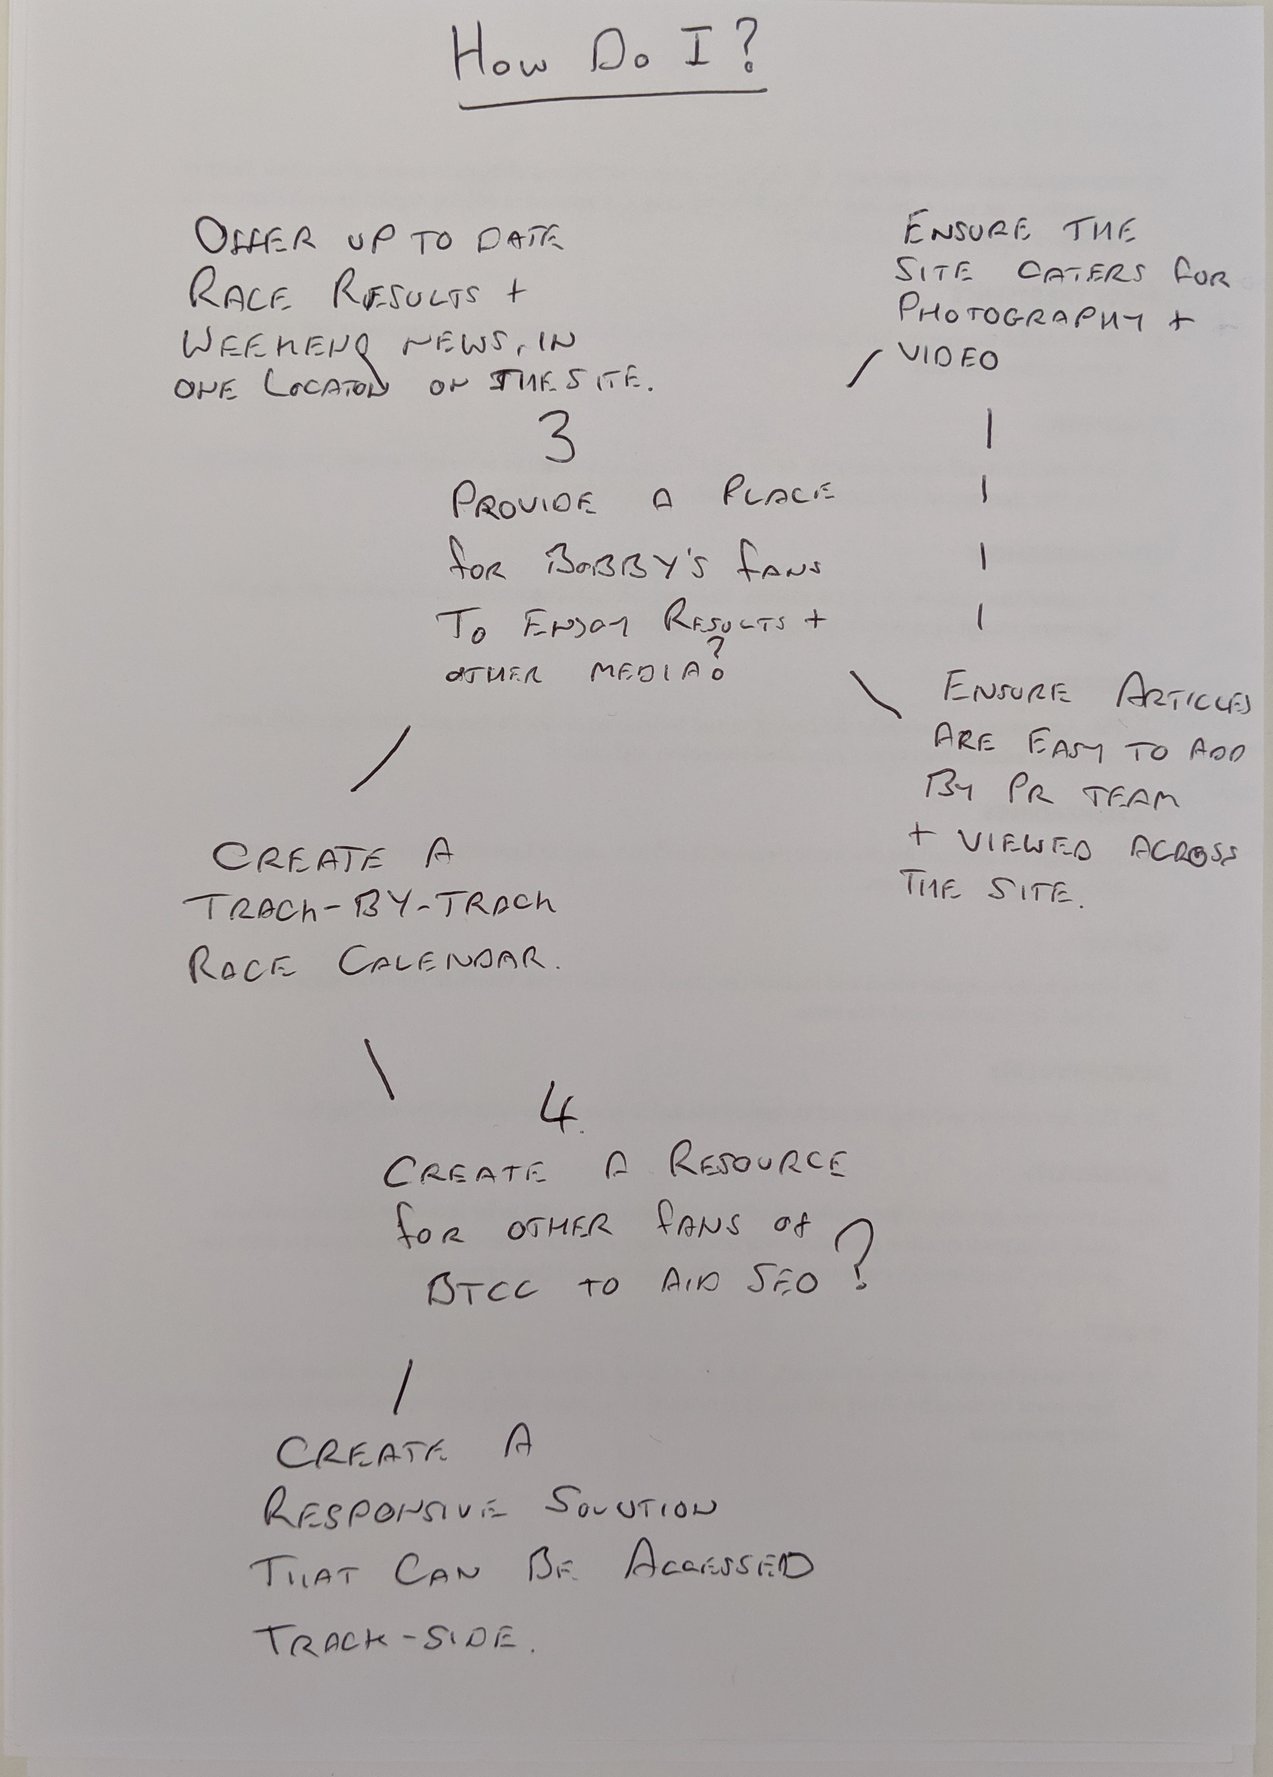 How Do I?
OFFER UP TO DATE
RACE RESULTS +
WEEKEND NEWS, IN
ONE LOCATON ON THE SITE.
ENSURE THE
SITE CATERS FOR
PHOTOGRAPHY +
VIDEO
3
PROVIDE A PLACE
FOR BOBBY'S FANS
TO ENJOY RESULTS +
OTHER MEDIA?
ENSURE ARTICLES
ARE EASY TO ADD
BY PR TEAM
+ VIEWED ACROSS
THE SITE.
CREATE A
TRACK-BY-TRACK
RACE CALENDAR.
4.
CREATE A RESOURCE
FOR OTHER FANS OF
BTCC TO AID SEO?
CREATE A
RESPONSIVE SOLUTION
THAT CAN BE ACCESSED
TRACK-SIDE.